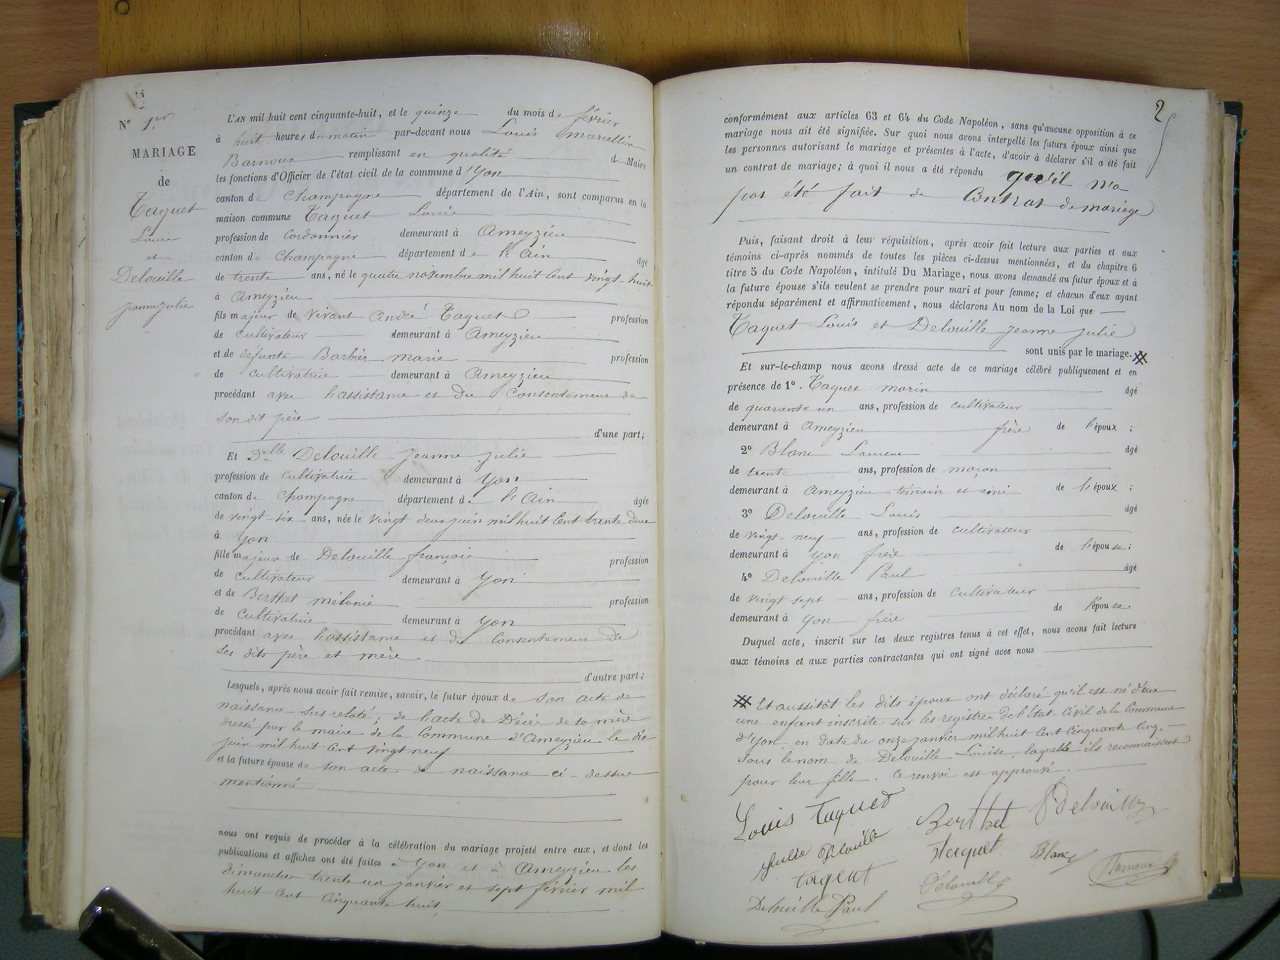 N° 1er
MARIAGE
de
Taquet
Louis
et
Delouille
jeanne julie
L'AN mil huit cent cinquante-huit, et le quinze du mois de février
à huit heures du matin par-devant nous Louis Marcellin
Barnoux remplissant en qualité de Maire
les fonctions d'Officier de l'état civil de la commune d'Yon
canton de Champagne département de l'Ain, sont comparus en la
maison commune Taquet Louis
profession de cordonnier demeurant à Ameyzieu
canton de Champagne département de l'Ain âgé
de trente ans, né le quatre novembre mil huit cent vingt-huit
à Ameyzieu
fils majeur de vivant André Taquet profession
de cultivateur demeurant à Ameyzieu
et de défunte Barbier marie profession
de cultivatrice demeurant à Ameyzieu
procédant avec l'assistance et du Consentement de
son dit père
d'une part;
Et Dlle Delouille jeanne julie
profession de cultivatrice demeurant à Yon
canton de Champagne département de l'Ain âgée
de vingt-six ans, née le vingt deux juin mil huit cent trente deux
à Yon
fille majeur de Delouille françois profession
de cultivateur demeurant à Yon
et de Berthet mélanie profession
de Cultivatrice demeurant à Yon
procédant avec l'assistance et du Consentement de
ses dits père et mère
d'autre part;
Lesquels, après nous avoir fait remise, savoir, le futur époux de son acte de
naissance sus relaté; de l'acte de Décès de sa mère
dressé par le maire de la Commune d'Ameyzieu le dix
juin mil huit cent vingt neuf
et la future épouse de son acte de naissance ci-dessus
mentionné
nous ont requis de procéder à la célébration du mariage projeté entre eux, et dont les
publications et affiches ont été faites à Yon et à Ameyzieu les
dimanches trente un janvier et sept février mil
huit cent cinquante huit
2
conformément aux articles 63 et 64 du Code Napoléon, sans qu'aucune opposition à ce
mariage nous ait été signifiée. Sur quoi nous avons interpellé les futurs époux ainsi que
les personnes autorisant le mariage et présentes à l'acte, d'avoir à déclarer s'il a été fait
un contrat de mariage; à quoi il nous a été répondu qu'il n'a
pas été fait de Contrat de mariage
Puis, faisant droit à leur réquisition, après avoir fait lecture aux parties et aux
témoins ci-après nommés de toutes les pièces ci-dessus mentionnées, et du chapitre 6
titre 5 du Code Napoléon, intitulé Du Mariage, nous avons demandé au futur époux et à
la future épouse s'ils veulent se prendre pour mari et pour femme; et chacun d'eux ayant
répondu séparément et affirmativement, nous déclarons Au nom de la Loi que
Taquet Louis et Delouille jeanne julie
sont unis par le mariage.
Et sur-le-champ nous avons dressé acte de ce mariage célébré publiquement et en
présence de 1°. Taquet marin âgé
de quarante un ans, profession de cultivateur
demeurant à Ameyzieu frère de l'époux;
2° Blanc Laurent âgé
de trente ans, profession de maçon
demeurant à Ameyzieu témoin et ami de l'époux;
3° Delouille Louis âgé
de vingt-neuf ans, profession de cultivateur
demeurant à Yon frère de l'épouse;
4° Delouille Paul âgé
de vingt sept ans, profession de cultivateur
demeurant à Yon frère de l'épouse
Duquel acte, inscrit sur les deux registres tenus à cet effet, nous avons fait lecture
aux témoins et aux parties contractantes qui ont signé avec nous
Et aussitôt les dits époux ont déclaré qu'il est né d'eux
une enfant inscrite sur les registres de l'État Civil de la Commune
d'Yon en date du onze janvier mil huit cent cinquante cinq
sous le nom de Delouille Louise, laquelle ils reconnaissent
pour leur fille. Ce renvoi est approuvé
Louis Taquet Berthet Delouille
julie Delouille Taquet Blanc Barnoux
Taquet Delouille
Delouille Paul